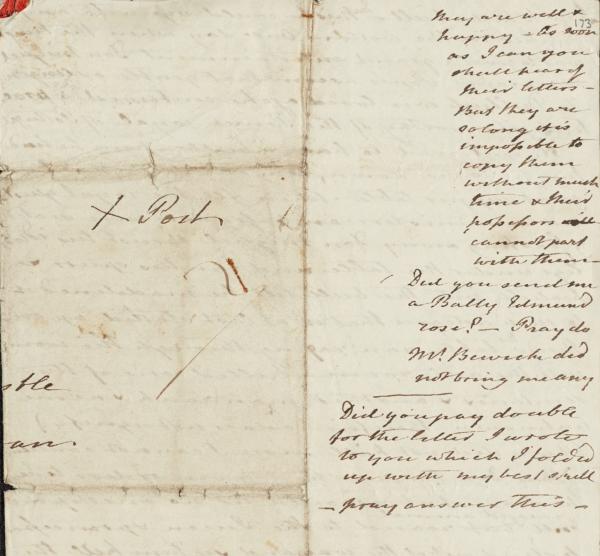 X Post
2
stle
an.
173
they are well &
happy - As soon
as I can you
shall hear of
their letters -
But they are
so long it is
impossible to
copy them
without much
time & their
possessors
cannot part
with them -
Did you send me
a Bally Edmund
rose? - Pray do
Mr. Bewicke did
not bring me any
Did you pay double
for the letter I wrote
to you which I folded
up with my best skill
- pray answer this -